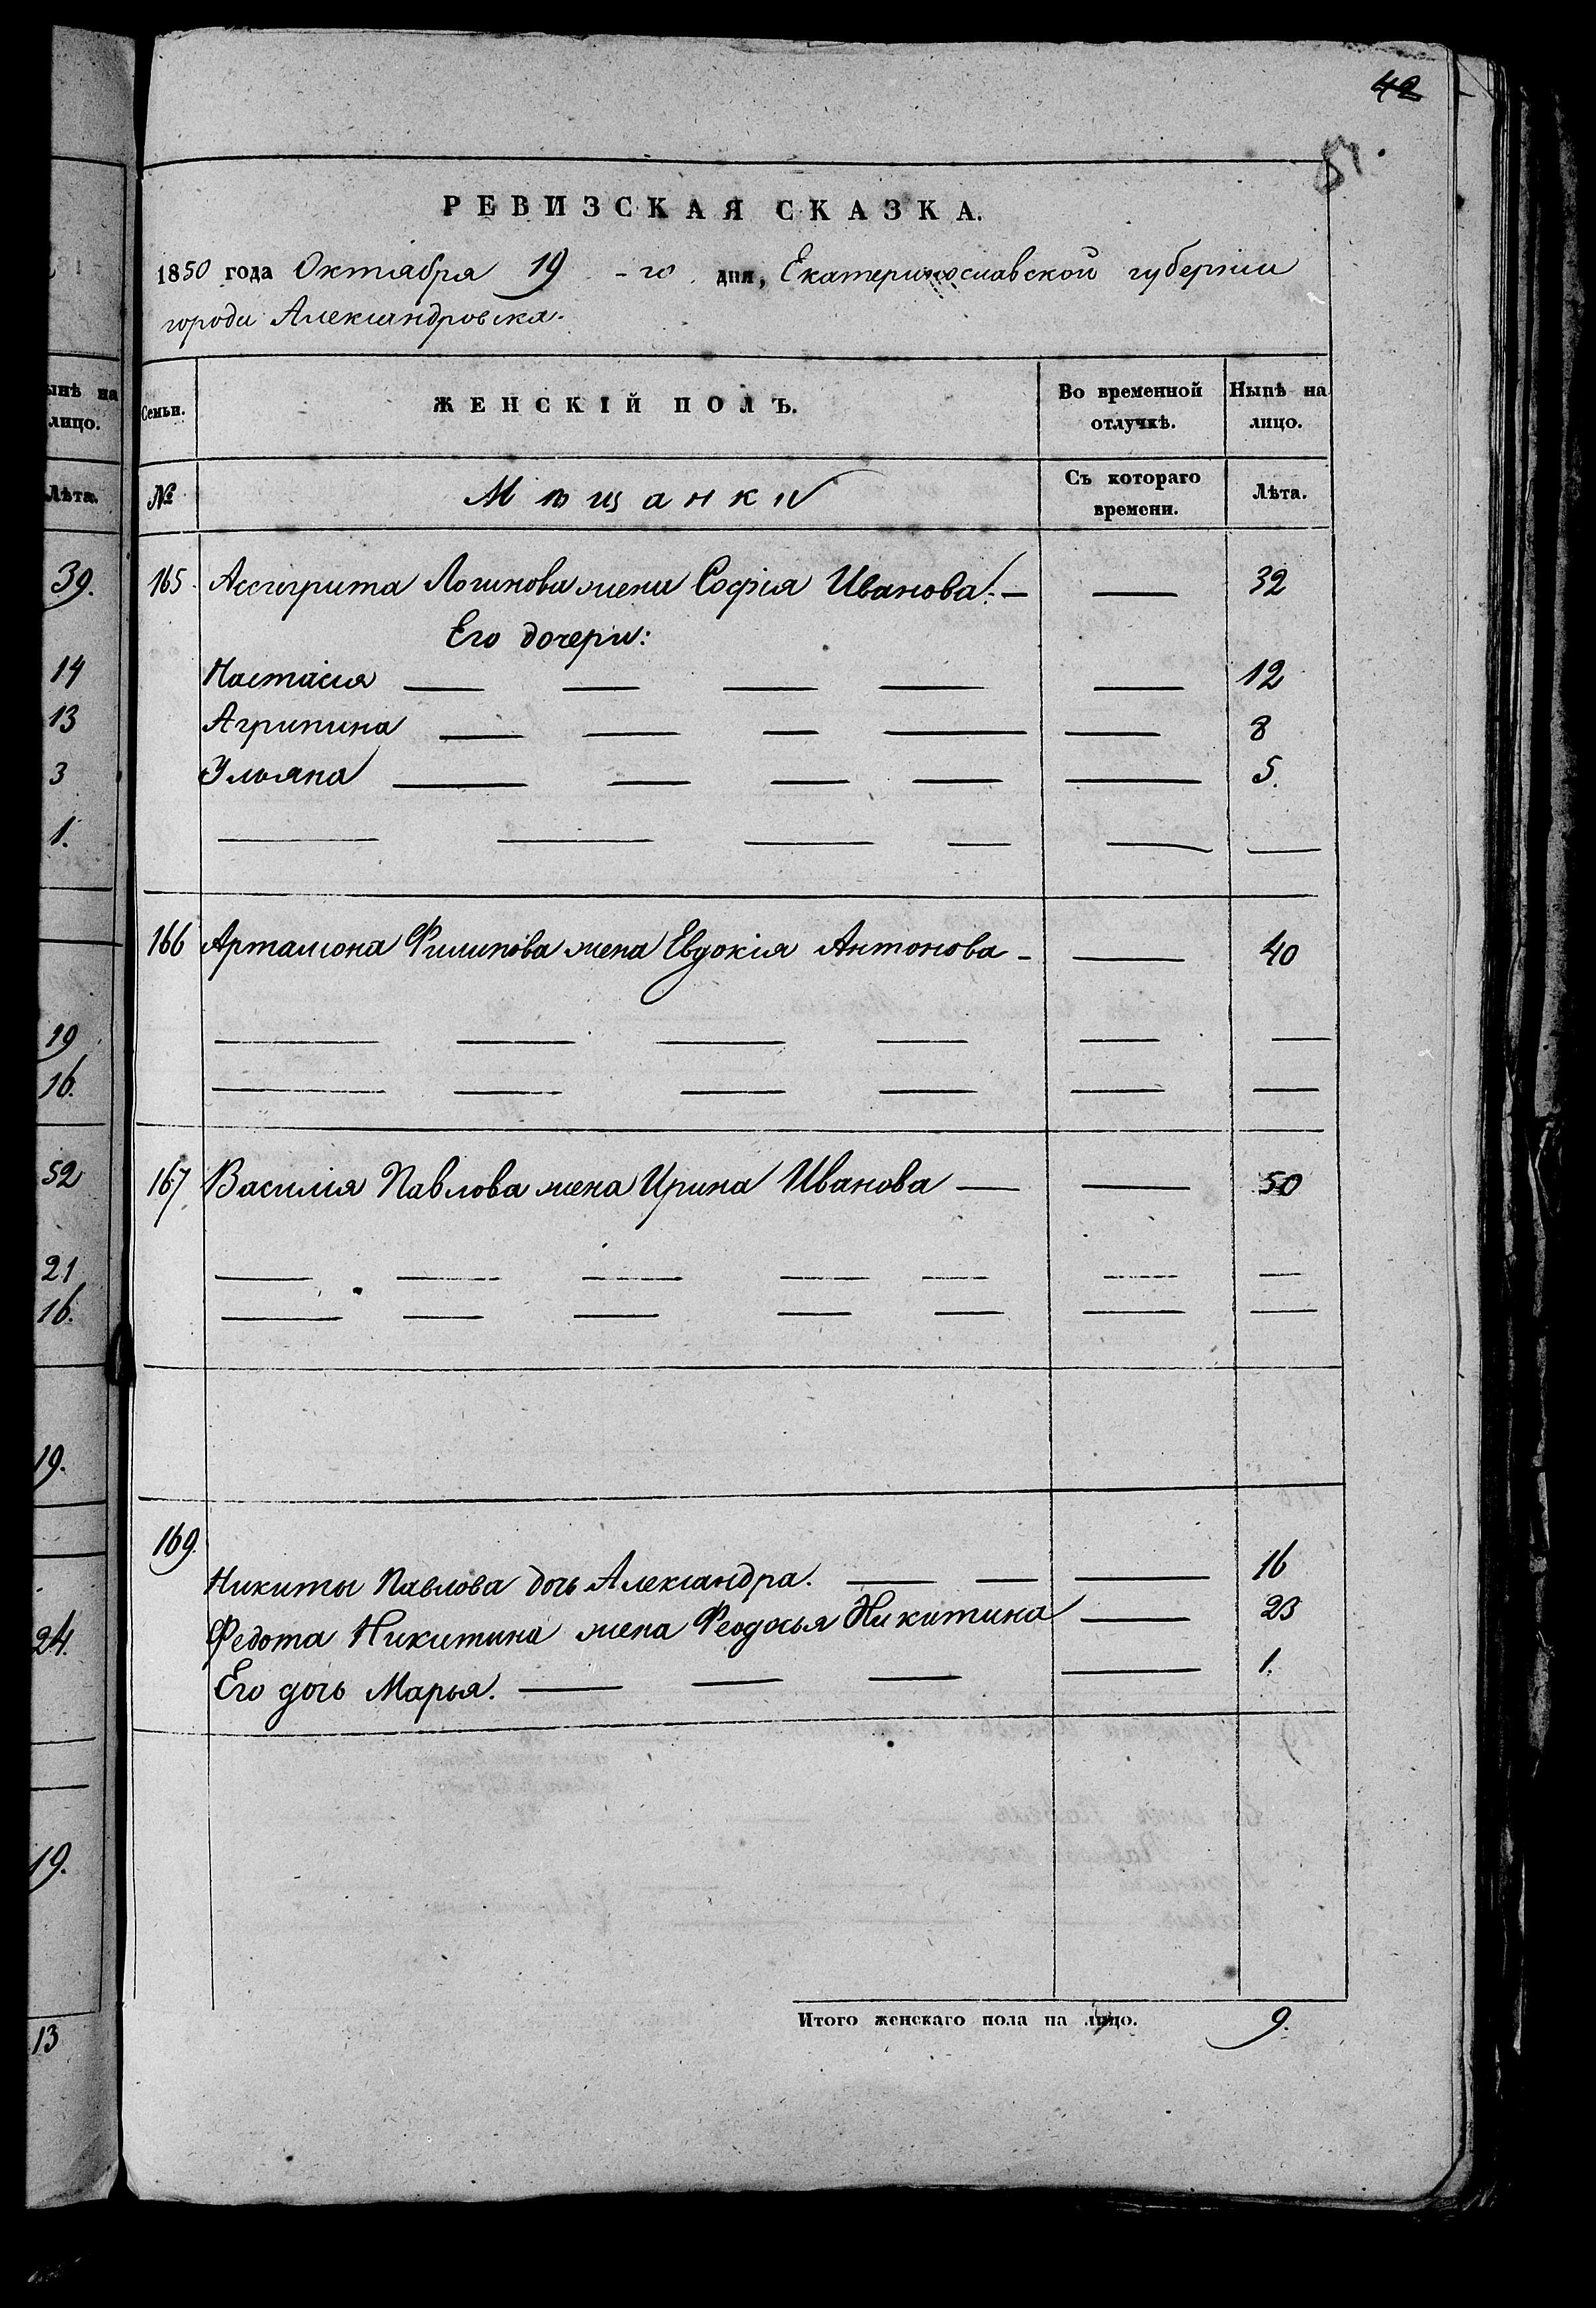 42
51.
РЕВИЗСКАЯ СКАЗКА.
1850 года Октября 19 -го дня, Екатеринославской губернии
города Александровска.
Семьи. ЖЕНСКІЙ ПОЛЪ. Во временной отлучкѣ. Нынѣ на лицо.
№ Мѣщанки Съ котораго времени. Лѣта.
165 Логинова жена Софія Иванова. — — 32
Его дочери:
Настасия — — — — — 12
Агрипина — — — — — 8
Ульяна — — — — — 5.
166 Артамона Филипова жена Евдокія Антонова - — 40
167 Василія Павлова жена Ирина Иванова — — 50
169.
Никиты Павлова дочь Александра. — — — 16
Федота Никитина жена Феодосья Никитина — 23
Его дочь Марья. — — — — 1.
Итого женскаго пола на лицо. 9.
ынѣ на
лицо.
Лѣта.
39.
14
13
3
1.
19
16.
52
21
16.
19.
24.
19.
13